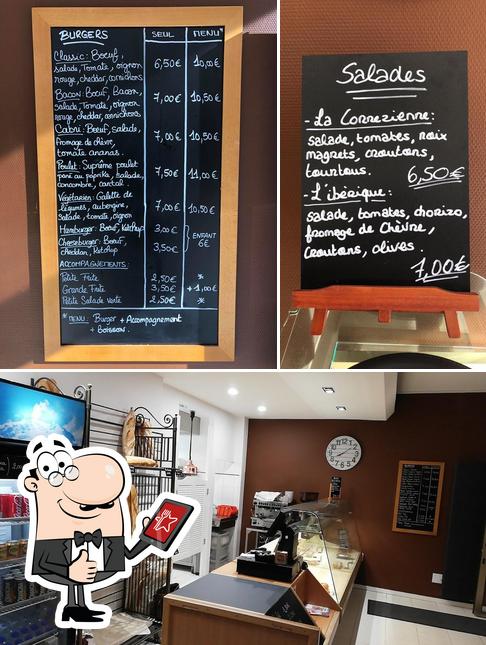 BURGERS SEUL MENU*
Classic: Boeuf,
salade, Tomate, oignon 6,50€ 10,00€
rouge, cheddar, cornichons.
Bacon: Boeuf, Bacon, 7,00€ 10,50€
salade, Tomate, oignon
rouge, cheddar, cornichons.
Cabri: Boeuf, Salade, 7,00€ 10,50€
fromage de chèvre,
tomate ananas.
Poulet: Suprême poulet 7,50€ 11,00€
pané au paprika, salade,
concombre, cantal.
Végétarien: Galette de 7,00€ 10,50€
légumes, aubergine,
salade, tomate, oignon
Hamburger: Boeuf, Ketchup 3,00€ ENFANT
Cheeseburger: Boeuf, 3,50€ 6€
cheddar, Ketchup
ACCOMPAGNEMENTS:
Petite Frite 2,50€ *
Grande Frite 3,50€ + 1,00€
Petite Salade verte 2,50€ *
* MENU: Burger + Accompagnement
+ Boisson.
Salades
- La Correzienne:
salade, tomates, noix
magrets, croutons,
tourtous. 6,50€
- L'ibérique:
salade, tomates, chorizo,
fromage de Chèvre,
Croutons, olives.
7,00€